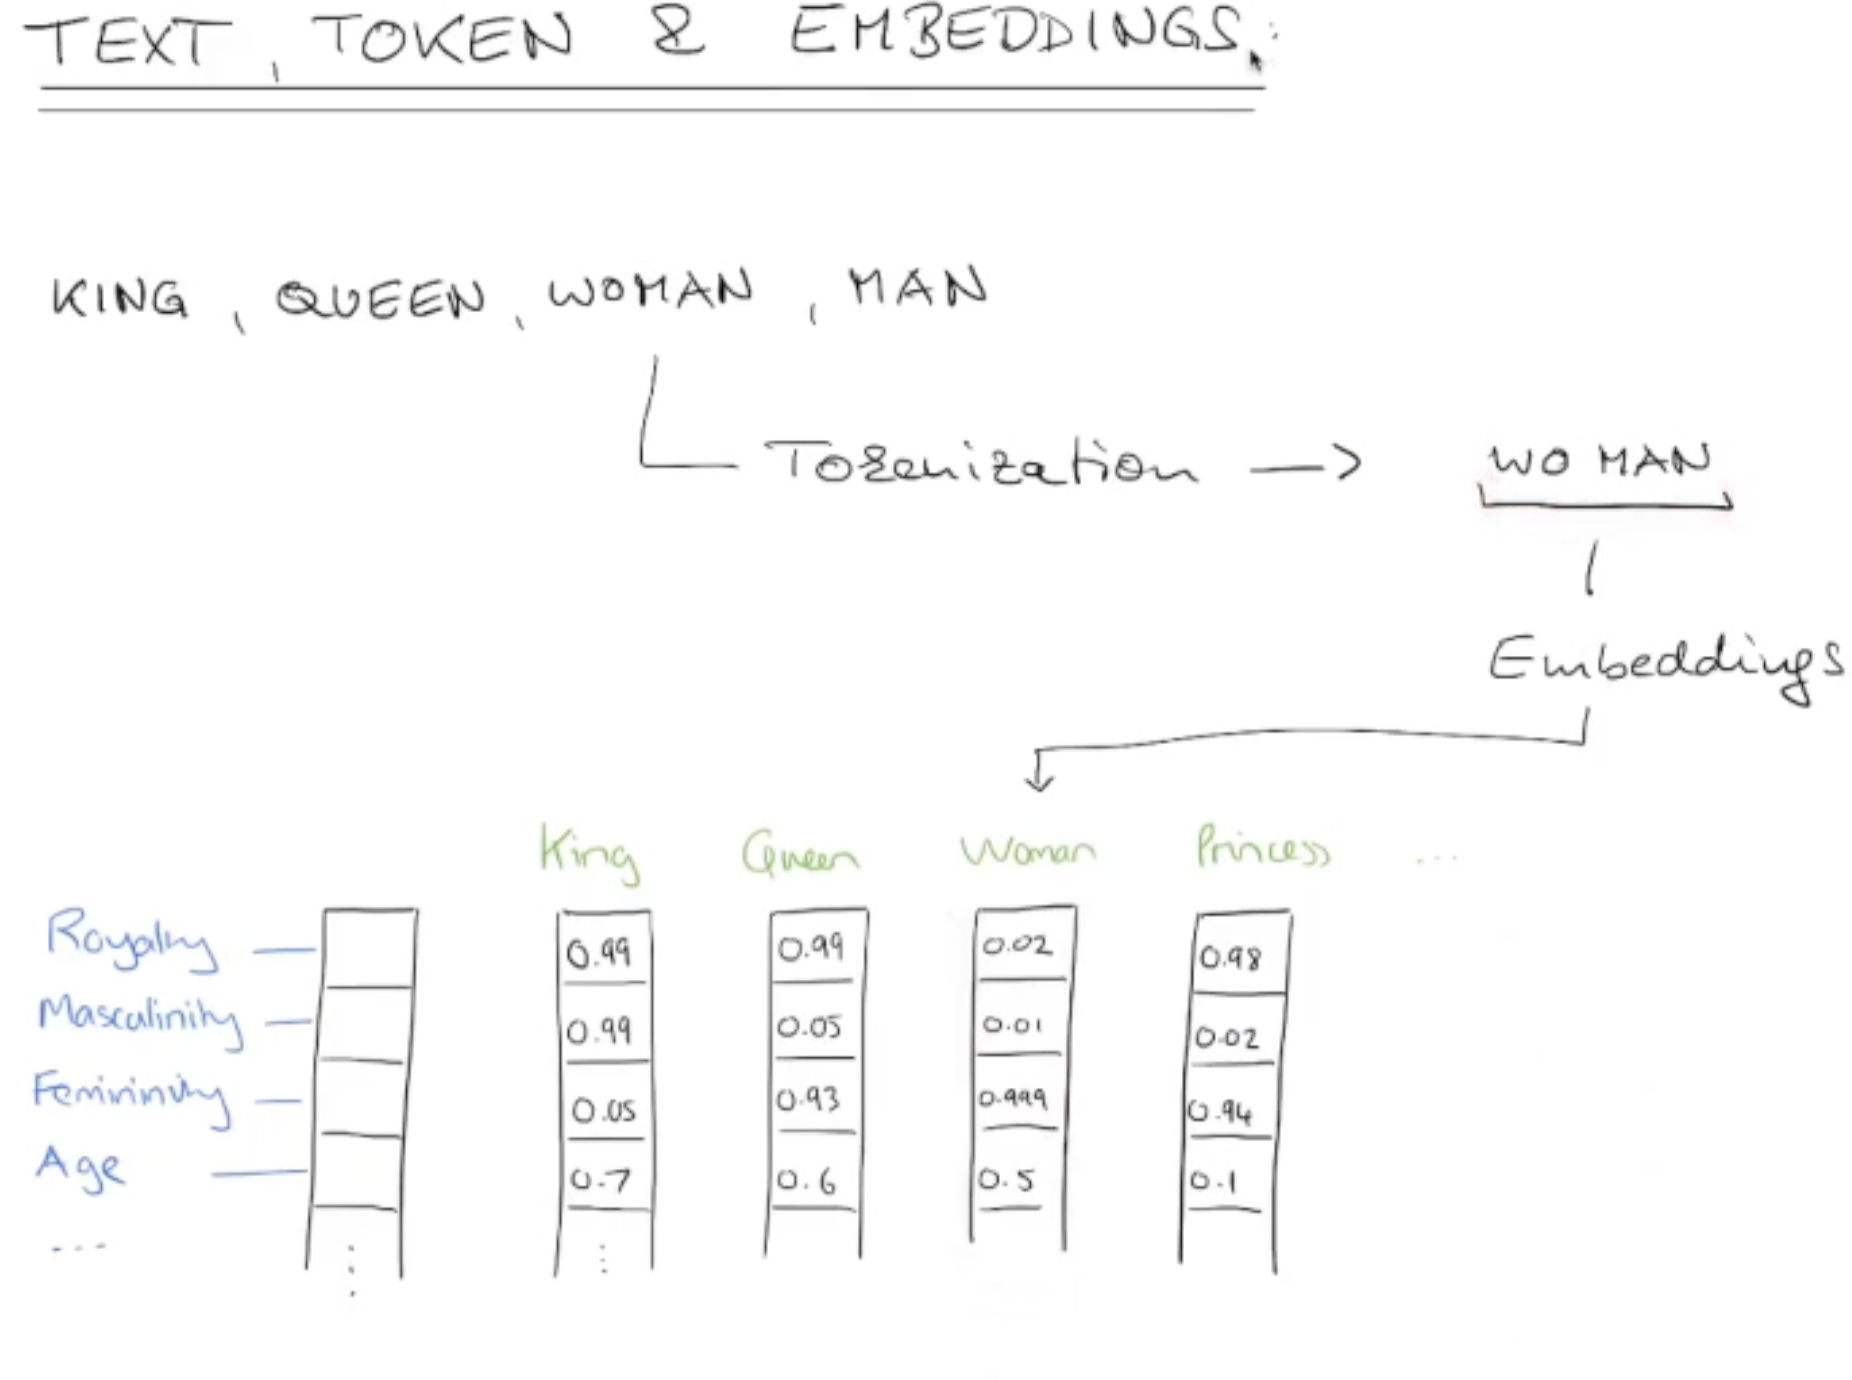 TEXT, TOKEN & EMBEDDINGS:
KING, QUEEN, WOMAN, MAN
Tokenization → WO MAN
Embeddings
King Queen Woman Princess ...
Royalty 0.99 0.99 0.02 0.98
Masculinity 0.99 0.05 0.01 0.02
Femininity 0.05 0.93 0.999 0.94
Age 0.7 0.6 0.5 0.1
...